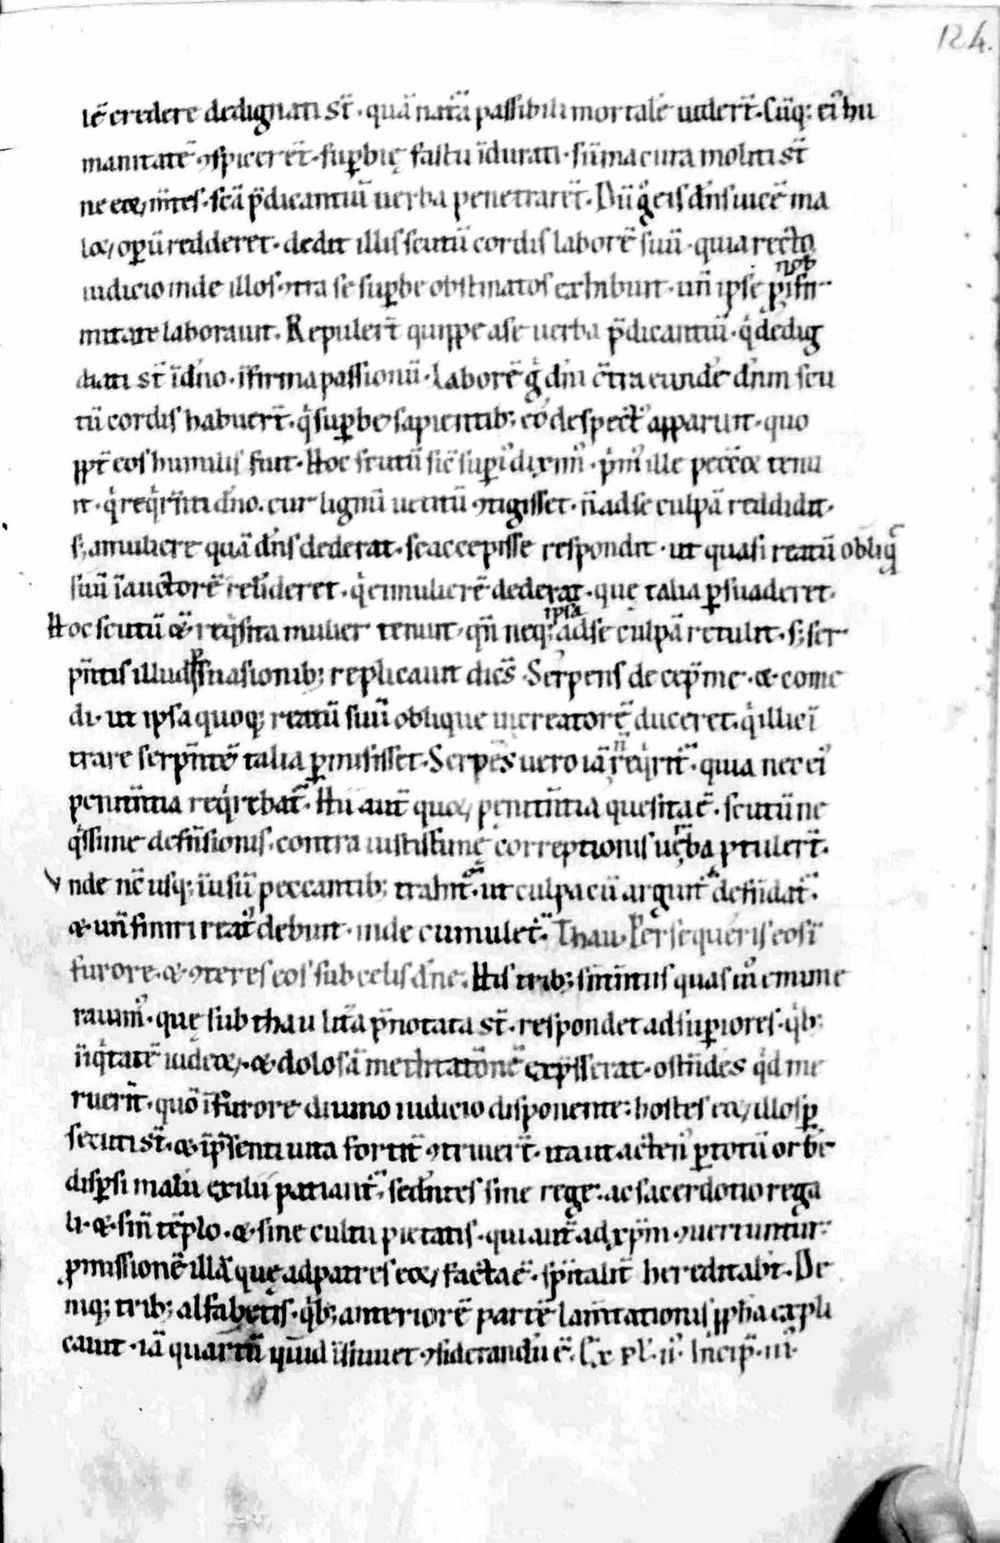 124.
lē credere dedignati st̄ · quā natā passibilē mortalē uider̄t · Cūq; ei' hu
manitatē ꝯspicer̄et · sup̄bię fastu īdurati · sūma cura moliti st̄
ne eoꝝ m̄tes · scā p̄dicantiū uerba penetrar̄et · Dū g̊ eis dn̄s uicē ma
loꝝ operū redderet · dedit illis scutū cordis laborē suū · quia recto
iudicio inde illos ꝯtra se sup̄be obstinatos exhibuit · un̄ ipse ꝓ nob̄ īfir
mitate laborauit. Repuler̄t quippe a se uerba p̄dicantiū · q̓ dedig
nati st̄ ī dn̄o · īfirma passionū · Laborē g̊ dn̄i cōtra eundē dn̄m scu
tū cordis habuer̄t · q̓ sup̄be sapientib; eo despect' apparuit · quo
ꝓpt̄ eos humilis fuit. Hoc scutū sic̄ supi' dixim' · p̓m' ille peccōꝝ tenu
it · q̓ req̓rēti dn̄o · cur lignū uetitū ꝯtigisset · n̄ ad se culpā reddidit ·
s; a muliere quā dn̄s dederat · se accepisse respondit · ut quasi reatū obliq̄
suū ī auctorē relideret · q̓ ei mulierē dederat · quę talia p̄suaderet ·
Hoc scutū & reqsita mulier tenuit · qn̄ neq; ipsa ad se culpā retulit · s; ser
pn̄tis illud p̄suasionib; replicauit dicēs · Serpens decep̄ me · & come
di · ut ipsa quoq; reatū suū oblique in creatorē duceret · q̓ illic ī
trare serpn̄tē talia p̄misisset · Serpēs uero iā n̄ req̓rit̄ · quia nec ei'
penitn̄tia req̓rebat̄ · Hi aut̄ quoꝝ penitn̄tia quesita ē · scutū ne
q̓ssime defn̄sionis · contra iustissimę correptionis uerba ptuler̄t ·
Vnde nc̄ usq; ī usū peccantib; trahit̄ · ut culpa cū arguit̄ defn̄dat̄ ·
& un̄ finiri reat' debuit · inde cumulet̄ · Thau · Persequeris eos ī
furore · & ꝯteres eos sub celis dn̄e · His trib; sn̄tn̄tiis quas m̊ cmume
rauim' · quę sub thau litā p̄notata st̄ · respondet ad sup̄iores · q̓b;
neq̓tatē iudeoꝝ · & dolosā meditatōnē exp̄sserat · ostn̄dēs q̓d me
ruer̄t · quō ī furore diuino iudicio disponente · hostes eoꝝ illos p̄
secuti st̄ · & ī p̄senti uita fortit̄ ꝯtriuer̄t · ita ut acten' p̄ totū orbē
disp̄si malū exilii patiant̄ · sedn̄tes sine rege · ac sacerdotio rega
li · & sin̄ tēplo · & sine cultu pietatis · qui aut̄ ad xp̄m ꝯuertuntur ·
ꝓmissionē illā quę ad patres eoꝝ facta ē · sp̄italit̄ hereditabt̄ · De
niq; trib; alfabetis · q̓b; anteriorē partē lam̄tationis ꝓph̄a expli
cauit · iā quartū quid īsinuet · ꝯsiderandū ē · Exp̄l · ii' · Incip̄ · iii' ·